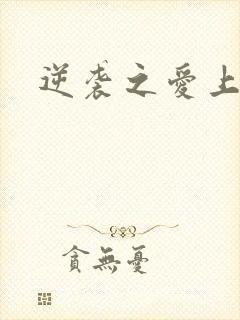 逆袭之爱上
貪無憂